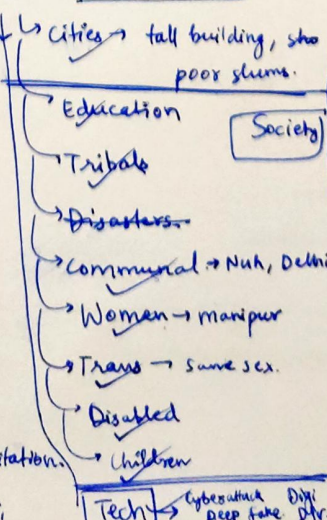 Cities → tall building,
poor slums.
Education
Society
Tribals
Disasters.
Communal → Nuh, Delhi
Women → manipur
Trans → same sex.
Disabled
Children
Tech → Cyberattack Digi
Deep fake